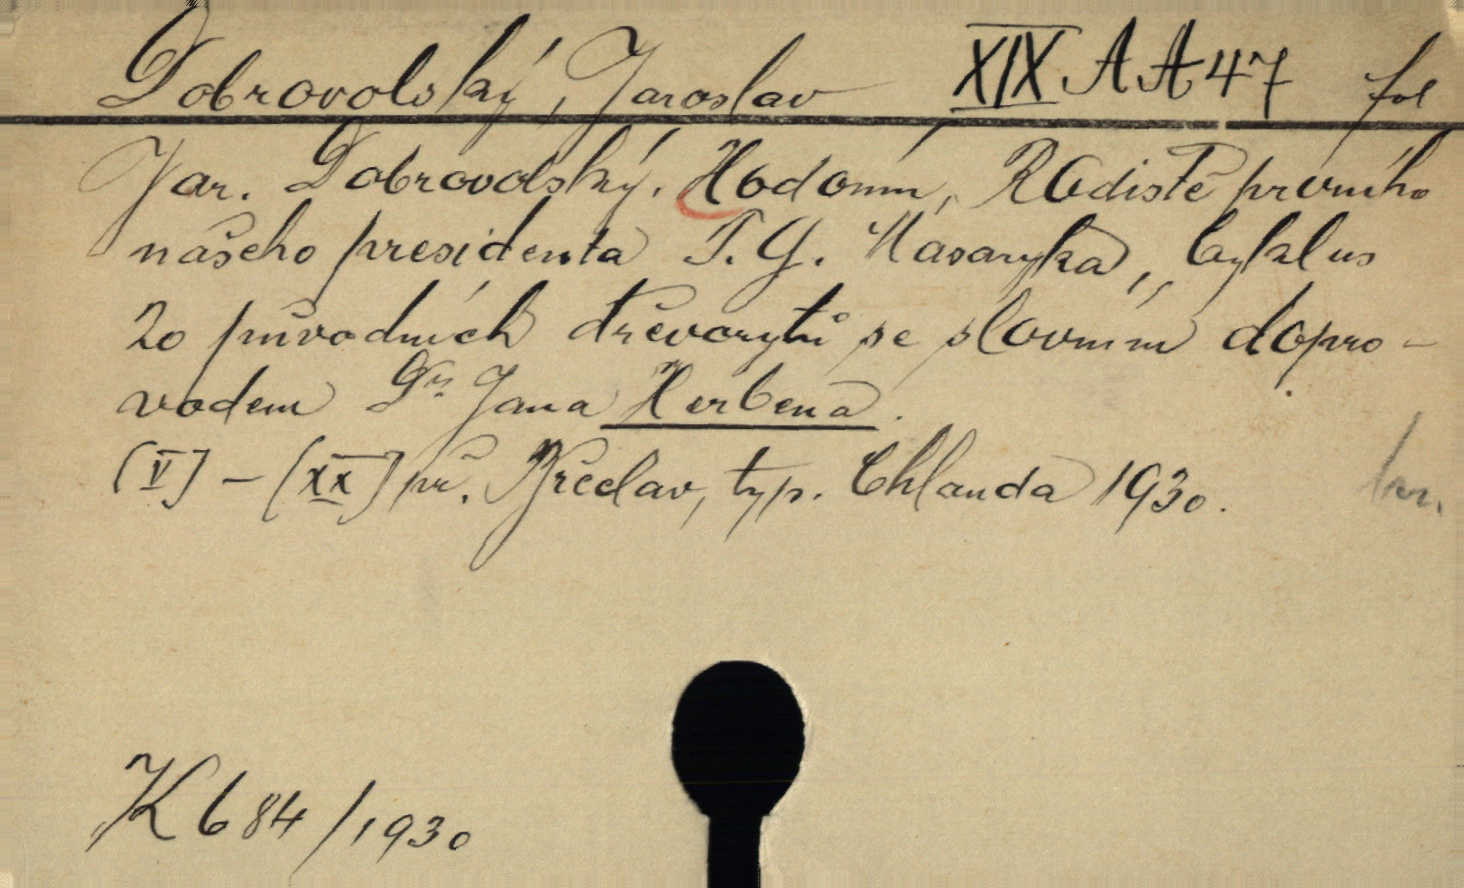 Dobrovolský, Jaroslav XIX AA 47 fol
Jar. Dobrovolský. Hodonín, Rodiště prvního
našeho presidenta T. G. Masaryka, Cyklus
20 původních dřevorytů se slovním dopro-
vodem Dra Jana Herbena.
[V] - [XX] př. Břeclav, typ. Chlanda 1930.
K 684/1930